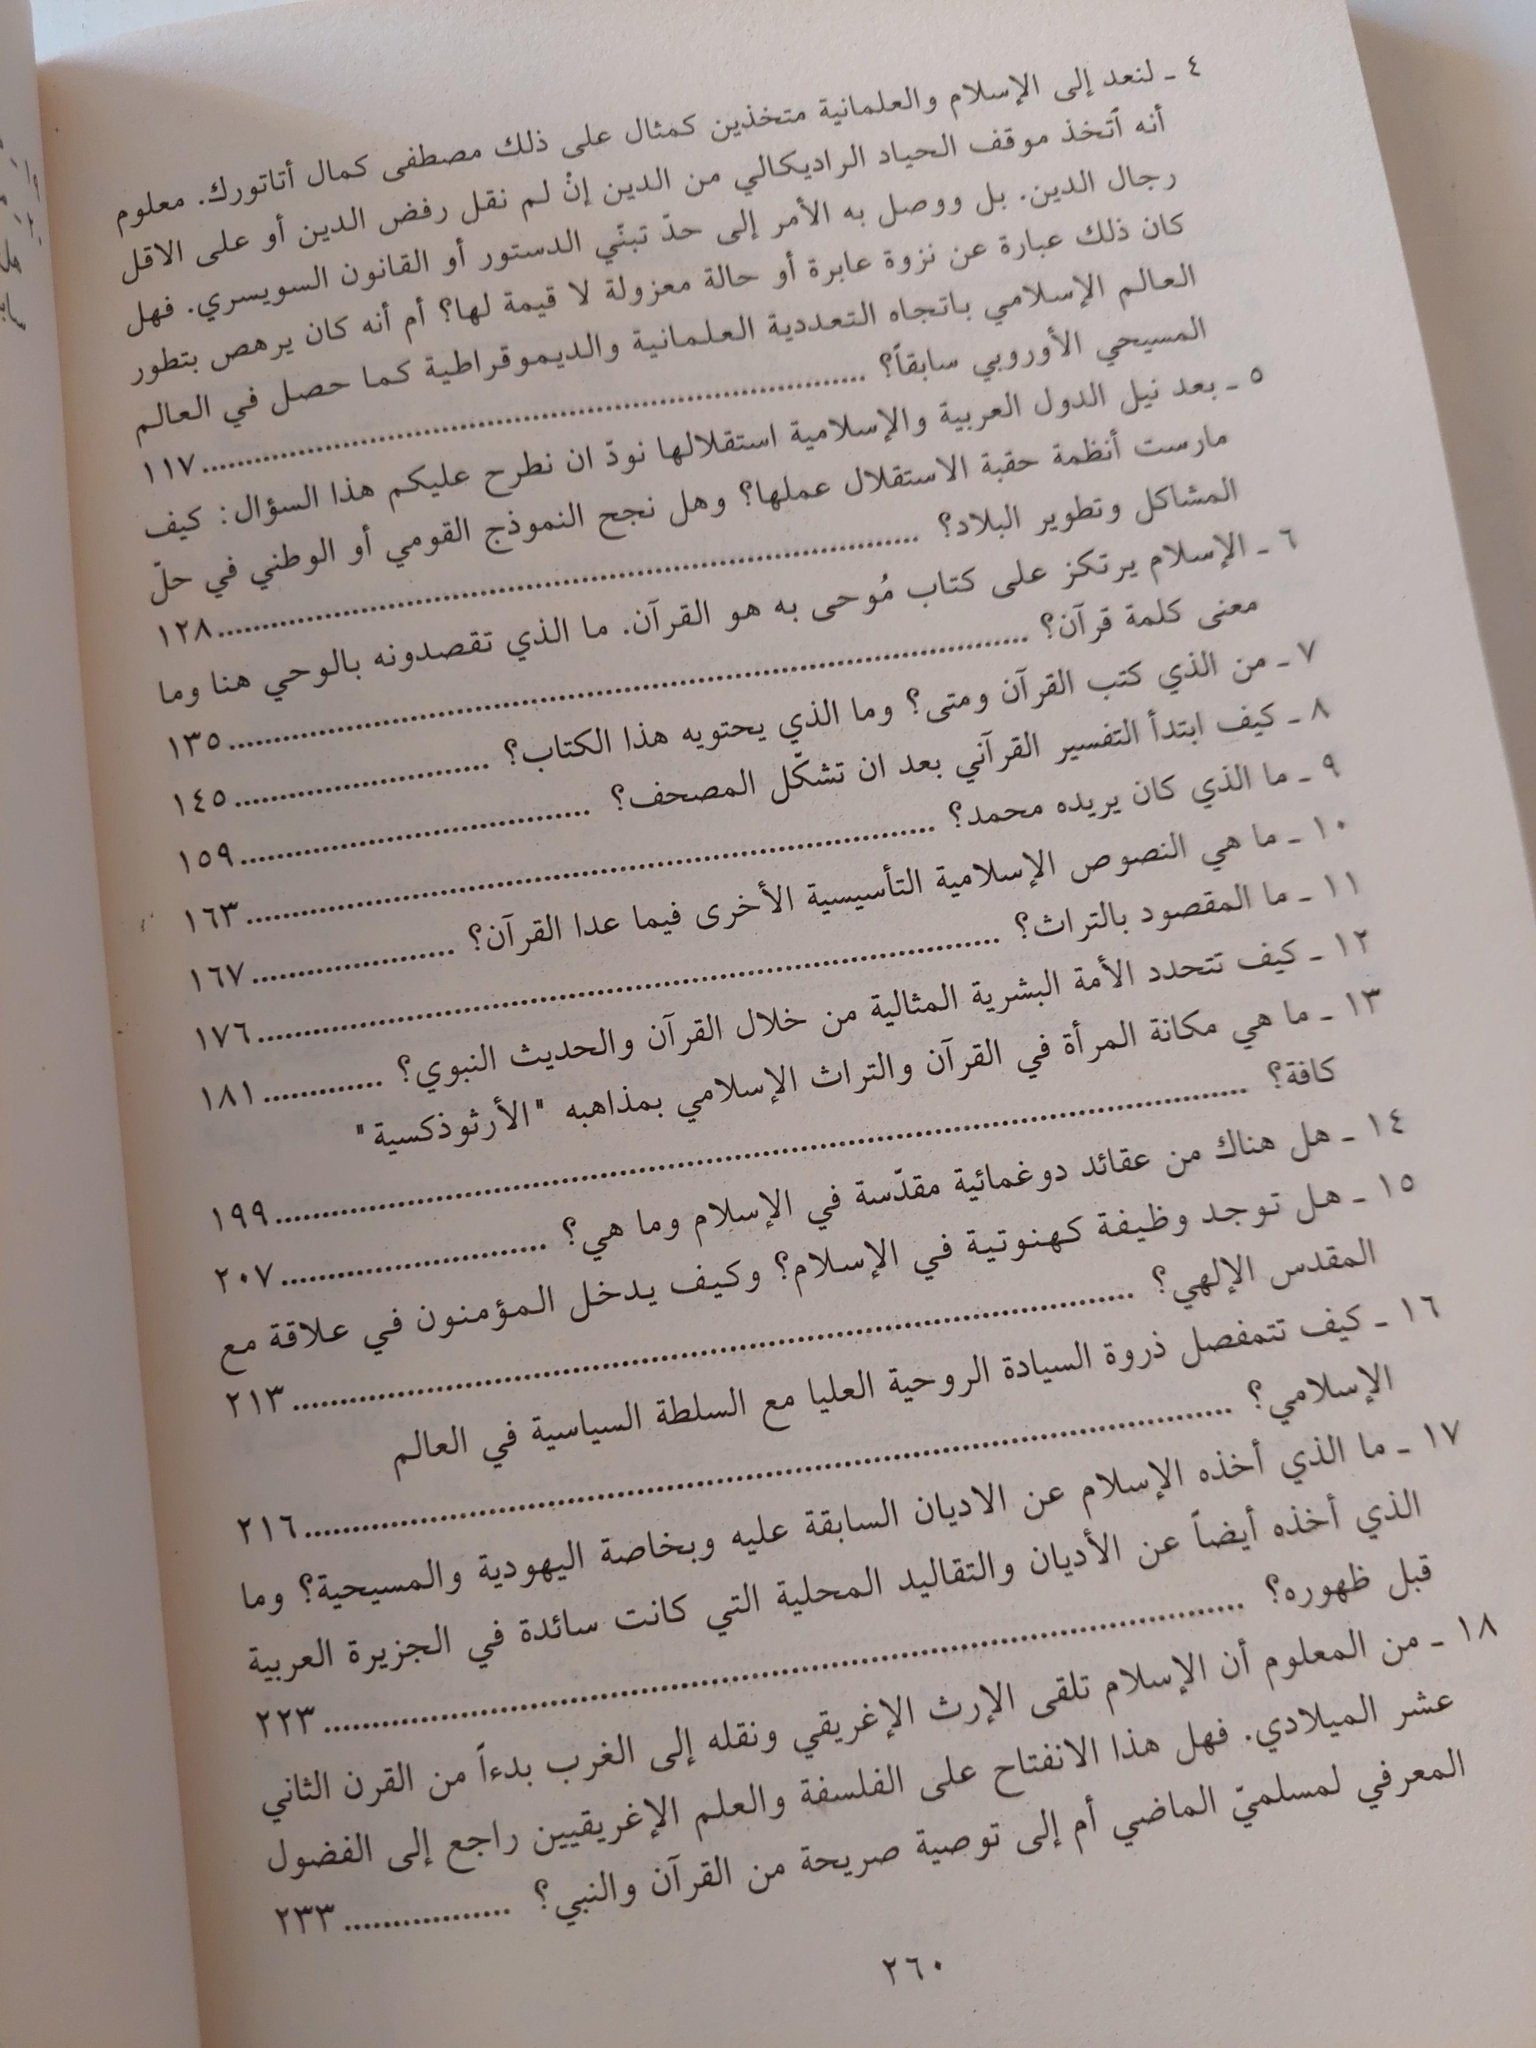 ٤ ـ لنعد إلى الإسلام والعلمانية متخذين كمثال على ذلك مصطفى كمال أتاتورك. معلوم
أنه ٱتخذ موقف الحياد الراديكالي من الدين إنْ لم نقل رفض الدين أو على الاقل
رجال الدين. بل ووصل به الأمر إلى حدّ تبنّي الدستور أو القانون السويسري. فهل
كان ذلك عبارة عن نزوة عابرة أو حالة معزولة لا قيمة لها؟ أم أنه كان يرهص بتطور
العالم الإسلامي باتجاه التعددية العلمانية والديموقراطية كما حصل في العالم
المسيحي الأوروبي سابقاً؟ ................ ١١٧
٥ ـ بعد نيل الدول العربية والإسلامية استقلالها نودّ ان نطرح عليكم هذا السؤال: كيف
مارست أنظمة حقبة الاستقلال عملها؟ وهل نجح النموذج القومي أو الوطني في حلّ
المشاكل وتطوير البلاد؟ ................ ١٢٨
٦ ـ الإسلام يرتكز على كتاب مُوحى به هو القرآن. ما الذي تقصدونه بالوحي هنا وما
معنى كلمة قرآن؟ ................ ١٣٥
٧ ـ من الذي كتب القرآن ومتى؟ وما الذي يحتويه هذا الكتاب؟ ................ ١٤٥
٨ ـ كيف ابتدأ التفسير القرآني بعد ان تشكّل المصحف؟ ................ ١٥٩
٩ ـ ما الذي كان يريده محمد؟ ................ ١٦٣
١٠ ـ ما هي النصوص الإسلامية التأسيسية الأخرى فيما عدا القرآن؟ ................ ١٦٧
١١ ـ ما المقصود بالتراث؟ ................ ١٧٦
١٢ ـ كيف تتحدد الأمة البشرية المثالية من خلال القرآن والحديث النبوي؟ ............. ١٨١
١٣ ـ ما هي مكانة المرأة في القرآن والتراث الإسلامي بمذاهبه "الأرثوذكسية"
كافة؟ ................ ١٩٩
١٤ ـ هل هناك من عقائد دوغمائية مقدّسة في الإسلام وما هي؟ ................ ٢٠٧
١٥ ـ هل توجد وظيفة كهنوتية في الإسلام؟ وكيف يدخل المؤمنون في علاقة مع
المقدس الإلهي؟ ................ ٢١٣
١٦ ـ كيف تتمفصل ذروة السيادة الروحية العليا مع السلطة السياسية في العالم
الإسلامي؟ ................ ٢١٦
١٧ ـ ما الذي أخذه الإسلام عن الاديان السابقة عليه وبخاصة اليهودية والمسيحية؟ وما
الذي أخذه أيضاً عن الأديان والتقاليد المحلية التي كانت سائدة في الجزيرة العربية
قبل ظهوره؟ ................ ٢٢٣
١٨ ـ من المعلوم أن الإسلام تلقى الإرث الإغريقي ونقله إلى الغرب بدءاً من القرن الثاني
عشر الميلادي. فهل هذا الانفتاح على الفلسفة والعلم الإغريقيين راجع إلى الفضول
المعرفي لمسلميّ الماضي أم إلى توصية صريحة من القرآن والنبي؟ ................ ٢٣٣
٢٦٠